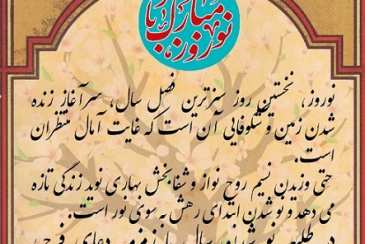 نوروز مبارک باد
نوروز، نخستین روز سبزترین فصل سال، سرآغاز زنده
شدن زمین و شکوفایی آن است که غایت آمال منتظران
است.
حتی وزیدن نسیم روح نواز و شفابخش بهاری نوید زندگی تازه
می دهد و نو شدن ابتدای رهش به سوی نور است.
در نو شدن سال دعای فرج